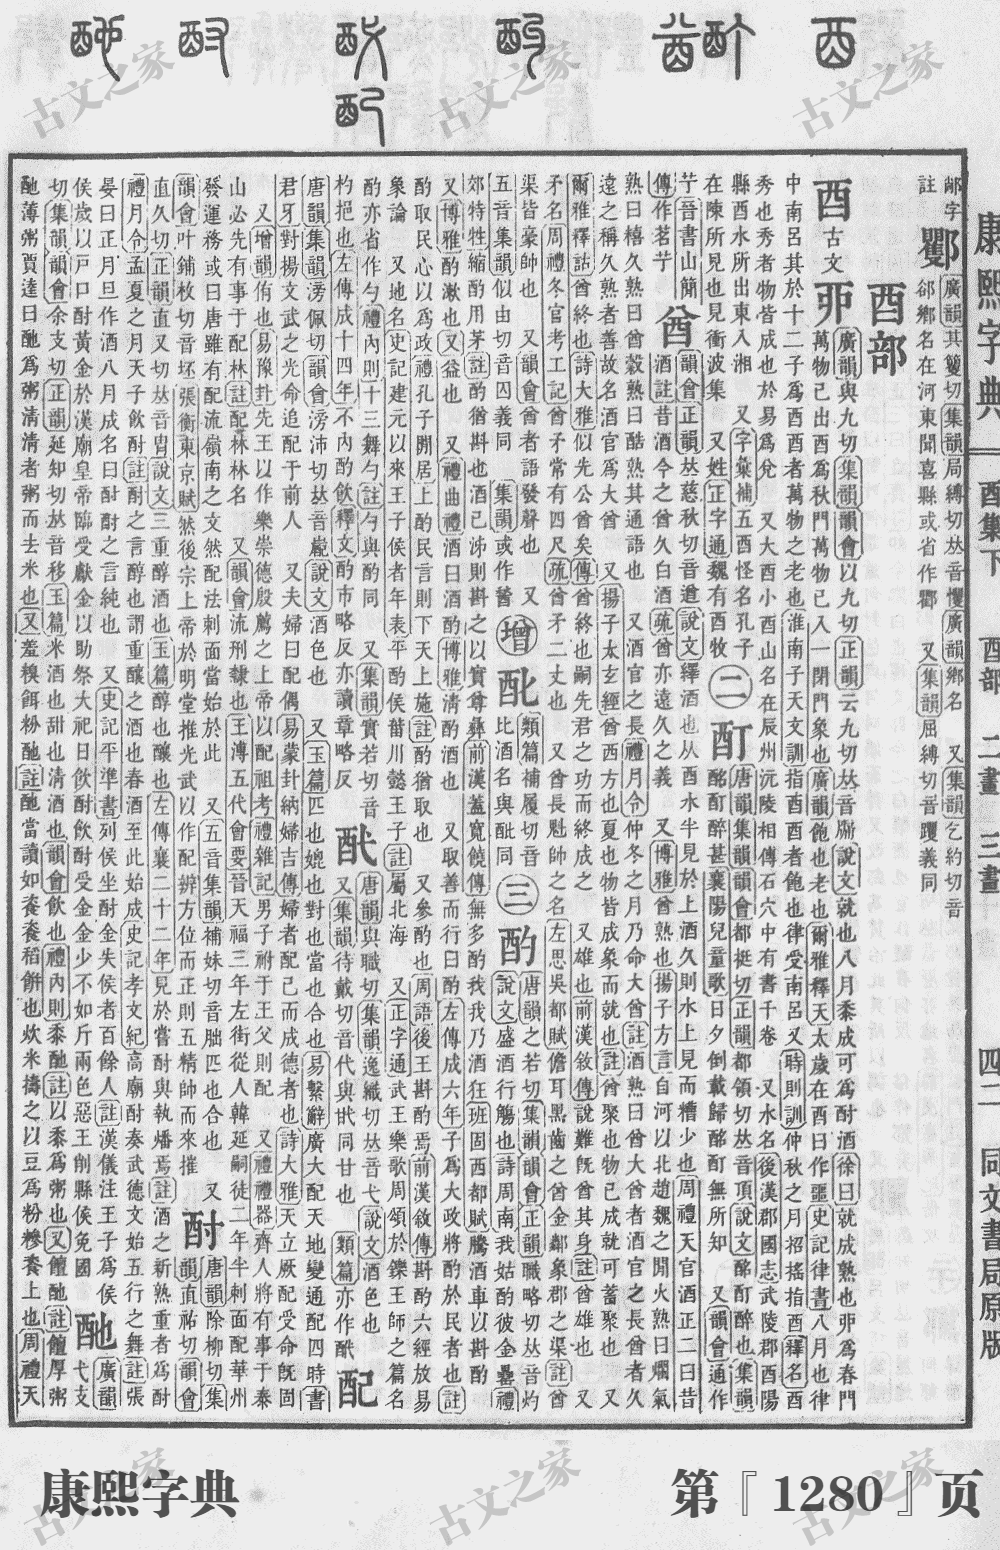 康熙字典 酉集下 酉部 二畫 三畫 四二 同文書局原版
字 廣韻其籰切集韻局縛切𠀤音戄廣韻鄉名 又集韻乞約切音
註 郤鄉名在河東聞喜縣或省作酄 又集韻屈縛切音躩義同
酉部
酉古文丣廣韻與九切集韻韻會以九切正韻云九切𠀤音牖說文就也八月黍成可爲酎酒徐曰就成熟也丣爲春門
萬物已出酉爲秋門萬物已入一閉門象也廣韻飽也老也爾雅釋天太歲在酉曰作噩史記律書八月也律
中南呂其於十二子爲酉酉者萬物之老也淮南子天文訓指酉酉者飽也律受南呂又時則訓仲秋之月招搖指酉釋名酉
秀也秀者物皆成也於易爲兌 又大酉小酉山名在辰州沅陵相傳石穴中有書千卷 又水名後漢郡國志武陵郡酉陽
縣酉水所出東入湘 又字彙補五酉怪名孔子
在陳所見也見衝波集 又姓正字通魏有酉牧 二 酊唐韻集韻韻會都挺切正韻都領切𠀤音頂說文酩酊醉也集韻
酩酊醉甚襄陽兒童歌日夕倒載歸酩酊無所知 又韻會通作
艼晉書山簡
傳作茗艼 酋韻會正韻𠀤慈秋切音遒說文繹酒也从酉水半見於上酒久則水上見而糟少也周禮天官酒正二曰昔
酒註昔酒今之酋久白酒疏酋亦遠久之義 又博雅酋熟也揚子方言自河以北趙魏之閒火熟曰爛氣
熟曰糦久熟曰酋穀熟曰酷熟其通語也 又酒官之長禮月令仲冬之月乃命大酋註酒熟曰酋大酋者酒官之長酋者久
遠之稱久熟者善故名酒官爲大酋 又揚子太玄經酋西方也夏也物皆成象而就也註酋聚也物已成就可蓄聚也 又
爾雅釋詁酋終也詩大雅似先公酋矣傳酋終也嗣先君之功而終成之 又雄也前漢敘傳說難旣酋其身註酋雄也 又
矛名周禮冬官考工記酋矛常有四尺疏酋矛二丈也 又酋長魁帥之名左思吳都賦儋耳黑齒之酋金鄰象郡之渠註酋
渠皆豪帥也 又韻會酋者語發聲也 又
五音集韻似由切音囚義同 集韻或作 增 𨠔類篇補履切音
比酒名與𨠔同 三 酌唐韻之若切集韻韻會正韻職略切𠀤音灼
說文盛酒行觴也詩周南我姑酌彼金罍禮
郊特牲縮酌用茅註酌猶斟也酒已泲則斟之以實尊彝前漢蓋寬饒傳無多酌我我乃酒狂班固西都賦騰酒車以斟酌
又博雅酌漱也 又益也 又禮曲禮酒曰清酌博雅清酌酒也 又取善而行曰酌左傳成六年子爲大政將酌於民者也註
酌取民心以爲政禮孔子閒居上酌民言則下天上施註酌猶取也 又參酌也周語後王斟酌焉前漢敘傳斟酌六經放易
象論 又地名史記建元以來王子侯者年表平酌侯菑川懿王子註屬北海 又正字通武王樂歌周頌於鑠王師之篇名
酌亦省作勺禮內則十三舞勺註勺與酌同 又集韻實若切音
杓挹也左傳成十四年不內酌飮釋文酌市略反亦讀章略反 酞唐韻與職切集韻逸織切𠀤音弋說文酒色也
又集韻待戴切音代與甙同甘也 類篇亦作 配
唐韻集韻滂佩切韻會滂沛切𠀤音嶏說文酒色也 又玉篇匹也媲也對也當也合也易繫辭廣大配天地變通配四時書
君牙對揚文武之光命追配于前人 又夫婦曰配偶易蒙封納婦吉傳婦者配己而成德者也詩大雅天立厥配受命旣固
又增韻侑也易豫卦先王以作樂崇德殷薦之上帝以配祖考禮雜記男子祔于王父則配 又禮禮器齊人將有事于泰
山必先有事于配林註配林林名 又韻會流刑隸也王溥五代會要晉天福三年左街從人韓延嗣徒二年半刺面配華州
發運務或曰唐雖有配流嶺南之文然配法刺面當始於此 又五音集韻補妹切音朏匹也合也 又
韻會叶鋪枚切音坯張衡東京賦然後宗上帝於明堂推光武以作配辨方位而正則五精帥而來摧 酎唐韻除柳切集
韻直祐切韻會
直久切正韻直又切𠀤音胄說文三重醇酒也玉篇醇也釀也左傳襄二十二年見於嘗酎與執燔焉註酒之新熟重者爲酎
禮月令孟夏之月天子飮酎註酎之言醇也謂重釀之酒也春酒至此始成史記孝文紀高廟酎奏武德文始五行之舞註張
晏曰正月旦作酒八月成名曰酎酎之言純也 又史記平準書列侯坐酎金失侯者百餘人註漢儀注王子爲侯
侯歲以戸口酎黃金於漢廟皇帝臨受獻金以助祭大祀日飮酎飮酎受金金少不如斤兩色惡王削縣侯免國 酏廣韻
弋支
切集韻韻會余支切正韻延知切𠀤音移玉篇米酒也甜也清酒也韻會飮也禮內則黍酏註以黍爲粥也又饘酏註饘厚粥
酏薄粥賈逵曰酏爲粥清清者粥而去米也又羞糗餌粉酏註酏當讀如餈餈稻餅也炊米擣之以豆爲粉糝餈上也周禮天
康熙字典
第『1280』页
古文之家